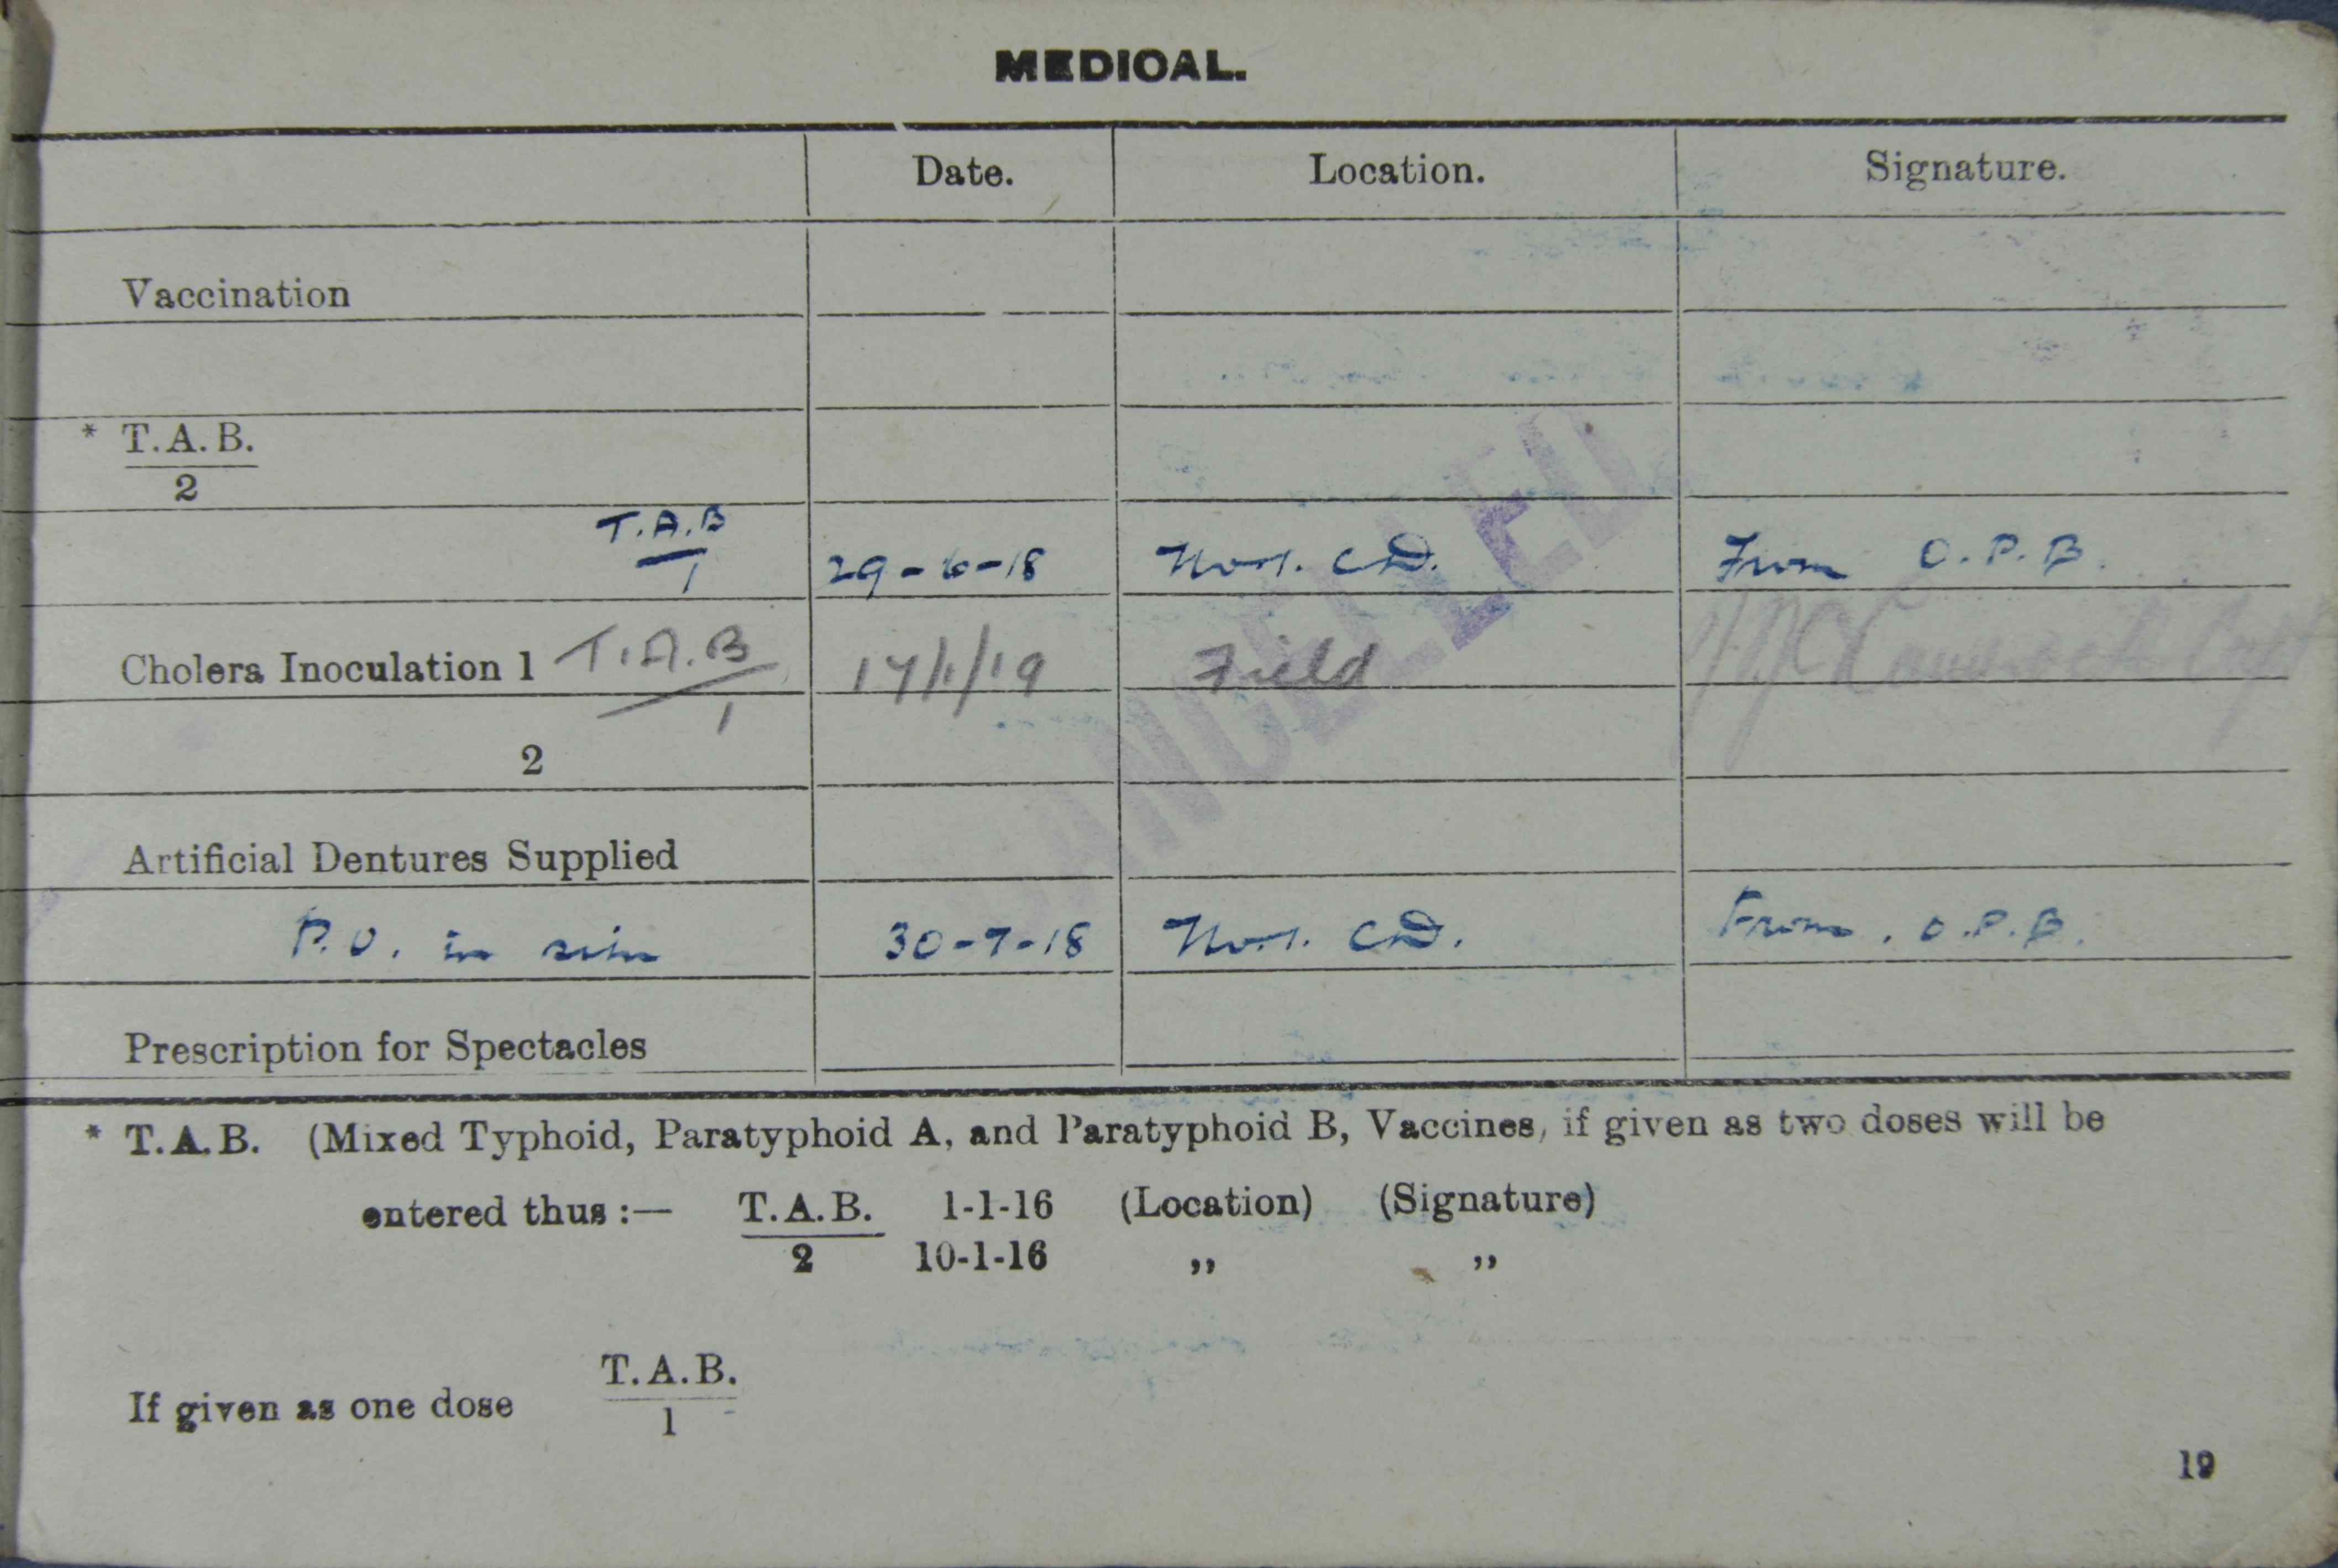 MEDICAL.
Date. Location. Signature.
Vaccination
* T.A.B.
2
T.A.B
1 29-6-18 C.D. From O.P.B.
Cholera Inoculation 1 T.A.B 17/1/19 Field Capt
1
2
Artificial Dentures Supplied
P.U. in situ 30-7-18 C.D. From. O.P.B.
Prescription for Spectacles
CANCELLED
* T.A.B. (Mixed Typhoid, Paratyphoid A, and Paratyphoid B, Vaccines, if given as two doses will be
entered thus :— T.A.B. 1-1-16 (Location) (Signature)
2 10-1-16 ,, ,,
If given as one dose T.A.B.
1
19